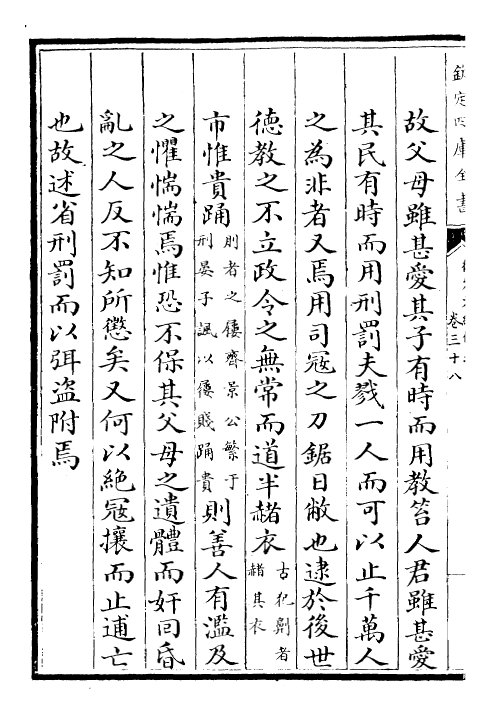 欽定四庫全書
卷三十八
故父母雖甚愛其子有時而用教笞人君雖甚愛
其民有時而用刑罰夫戮一人而可以止千萬人
之為非者又焉用司冦之刀鋸日敝也逮於後世
徳教之不立政令之無常而道半赭衣古犯劓者赭其衣
市惟貴踊刖者之屨齊景公繁于刑晏子諷以屨賤踊貴則善人有濫及
之懼惴惴焉惟恐不保其父母之遺體而奸回昏
亂之人反不知所懲矣又何以絶冦攘而止逋亡
也故述省刑罰而以弭盗附焉